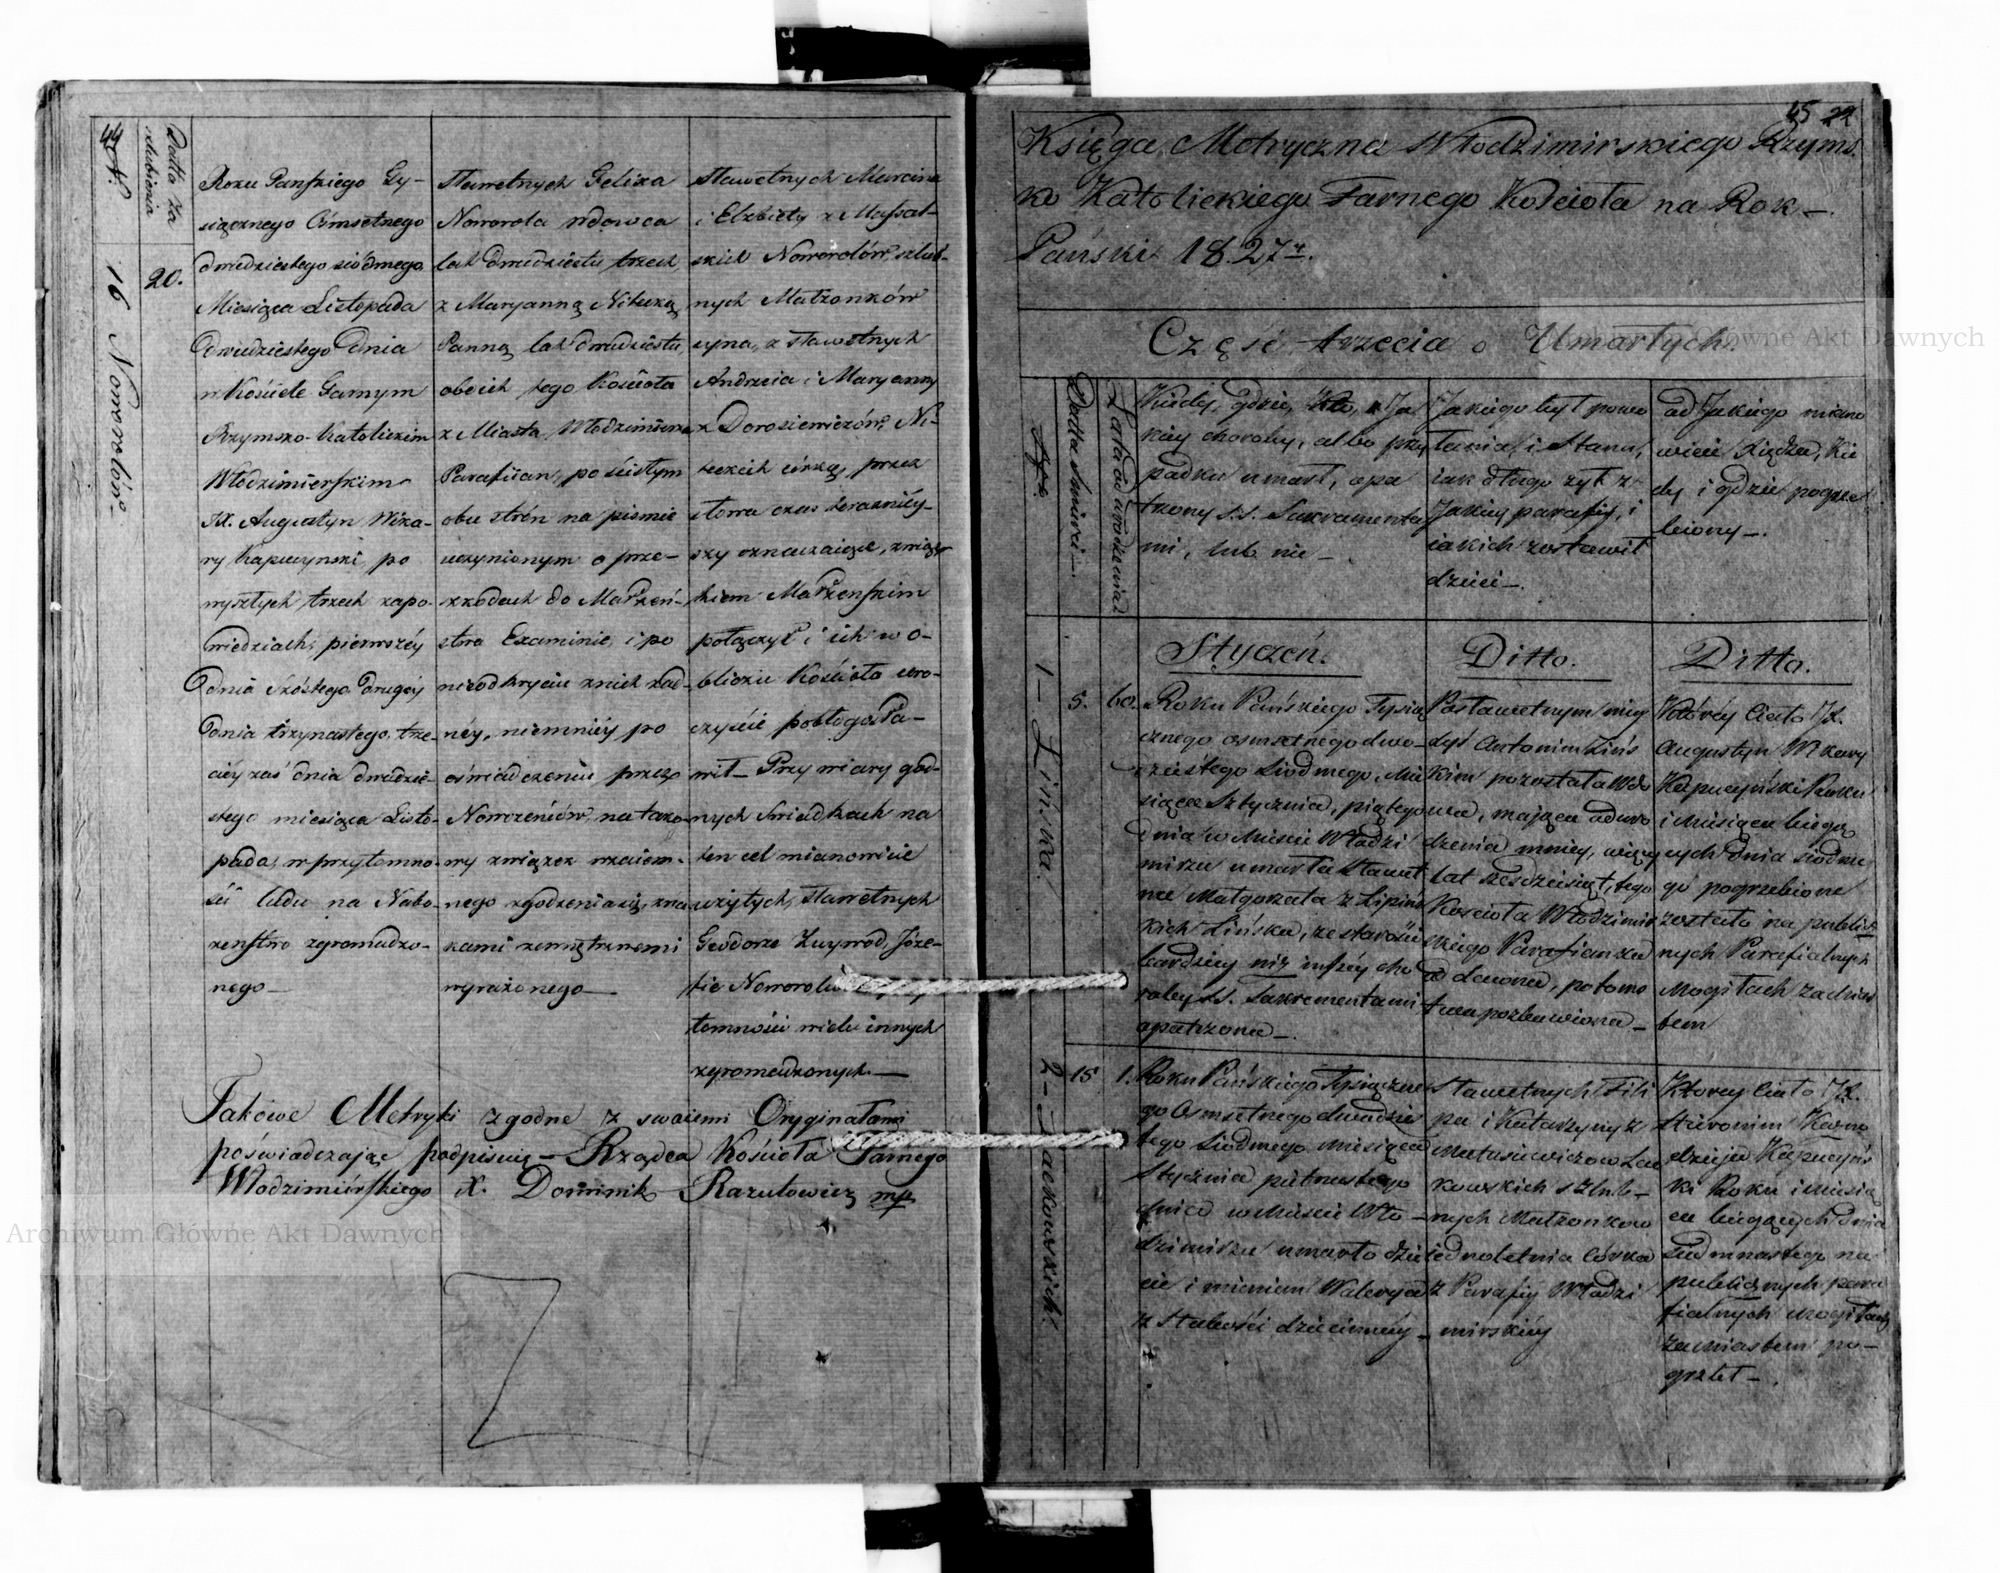 44
N.
Datta za
szlubienia
16 Nowrolów
20.
Roku Pańskiego Ty-
siącznego Ośmsetnego
dwudziestego siódmego
Miesiąca Listopada
Dwudziestego Dnia
w Kościele Farnym
Rzymsko-Katolickim
Włodzimierskim
JX. Augustyn Wika-
ry Kapucynski, po
wyszłych trzech zapo-
wiedziach, pierwszéy
Dnia szóstego drugiéy
Dnia trzynastego, trze-
ciéy zaś dnia dwudzie-
stego miesiąca Listo-
pada, w przytomno-
ści ludu na Nabo-
żeństwo zgromadzo-
nego—
Sławetnych Felixa
Nowrola wdowca
lat dwadzieścia trzech
z Maryanną
Panną lat dwadzieścia,
oboich tego Kościoła
z Miasta Włodzimierza
Parafiian, po ścisłym
obu strón na piśmie
uczynionym o prze-
szkodach do Małżeń-
stwa Examinie, i po
nieodkryciu żnich żad-
néy, niemniéy po
oświadczeniu przez
Nowożeńców, na tako-
wy związek wzaiem-
nego zgodzenia się, zna-
kami zewnętrznemi
wyrażonego—
sławetnych Marcina
i Elżbiety z Massal-
skich Nowrolów, szlub-
nych Małżonków
syna, z sławetnych
Andrzeia i Maryanny
z Dorosiewiczów, Ni-
córką, przez
słowa czas teraźniéy-
szy oznaczaiące, związ-
kiem Małżeńskim
połączył i ich w o-
bliczu Kościoła uro-
czyście pobłogosła-
wił— Przy wiary god-
nych Świadkach na
ten cel mianowicie
użytych, sławetnych
Józe-
fie
tomności wielu innych
zgromadzonych.—
Takówe Metryki zgodne z swoiemi Oryginałami
poświadczając podpisuię— Rządca Kościoła Farnego
Włodzimiérskiego X. Dominik Razutowicz mp
45 22
Księga Metryczna Włodzimirskiego Rzyms.
ko Katolickiego Farnego Kościoła na Rok—
Pański 1827.
Część trzecia o Umarłych.
Datta Smierci—
Lata od urodzenia
Kiedy, gdzie, kto, z Ja
kiéy choroby, albo przy
padku umarł, opa
trzony s.s. Sakramenta
mi, lub nie—
Jakiego był powo
łania, i Stanu,
iak długo żył z
Jakiéy parafii, i
iakich zostawił
dzieci—.
od Jakiego miano
wicie Xiędza, kie
dy i gdzie pogrze
biony—.
Styczeń.
Ditto.
Ditto.
1— Lińska.
5.
60.
Roku Pańskiego Tysią
cznego osmsetnego dwu-
dziestego Siodmego, Mie
siąca Stycznia, piątego
dnia w Mieście Włodzi
mirzu umarła Sławet
na Małgorzata z Lipińs
kich Lińska, ze starości
bardziéy niż inszéy cho
roby S.S. Sakramentami
opatrzona—.
Po sławetnym niég
dyś Antonim Lińs
kim pozostała Wdo
wa, mająca od uro
dzenia mniéy, więcéy
lat sześdziesiąt, tego
Kościoła Włodzimir
skiego Parafianka
od dawna, potoms
twa pozbawiona—
Któréy Ciało JX.
Augustyn Wikary
Kapucyński Roku
i Miesiąca biegą
cych dnia siodme
go pogrzebione
zostało na public
nych Parafialnych
Mogiłach za Mias
tem
2— Laskowskich.
15
1.
Roku Pańskiego Tysiączne
go Osmsetnego dwudzies
tego Siodmego miesiąca
Stycznia piętnastego
dnia w Mieście Wło—
dzimirzu umarło dzie
cie imieniem Waleryia
z słabości dziecinnéy—
Sławetnych Fili
pa i Katarzyny z
Matusiewiczow Las
kowskich szlub—
nych Małżonkow
iednoletnia Córka
z Parafiy Włodzi
mirskiéy
Któréy Ciało JX.
Hieronim Kazno
dzieja Kapucyńs
ki Roku i Miesią
ca biegących dnia
siedmnastego na
publicznych para
fialnych mogiłach
za miastem po—
grzebł—.
Archiwum Główne Akt Dawnych
Archiwum Główne Akt Dawnych